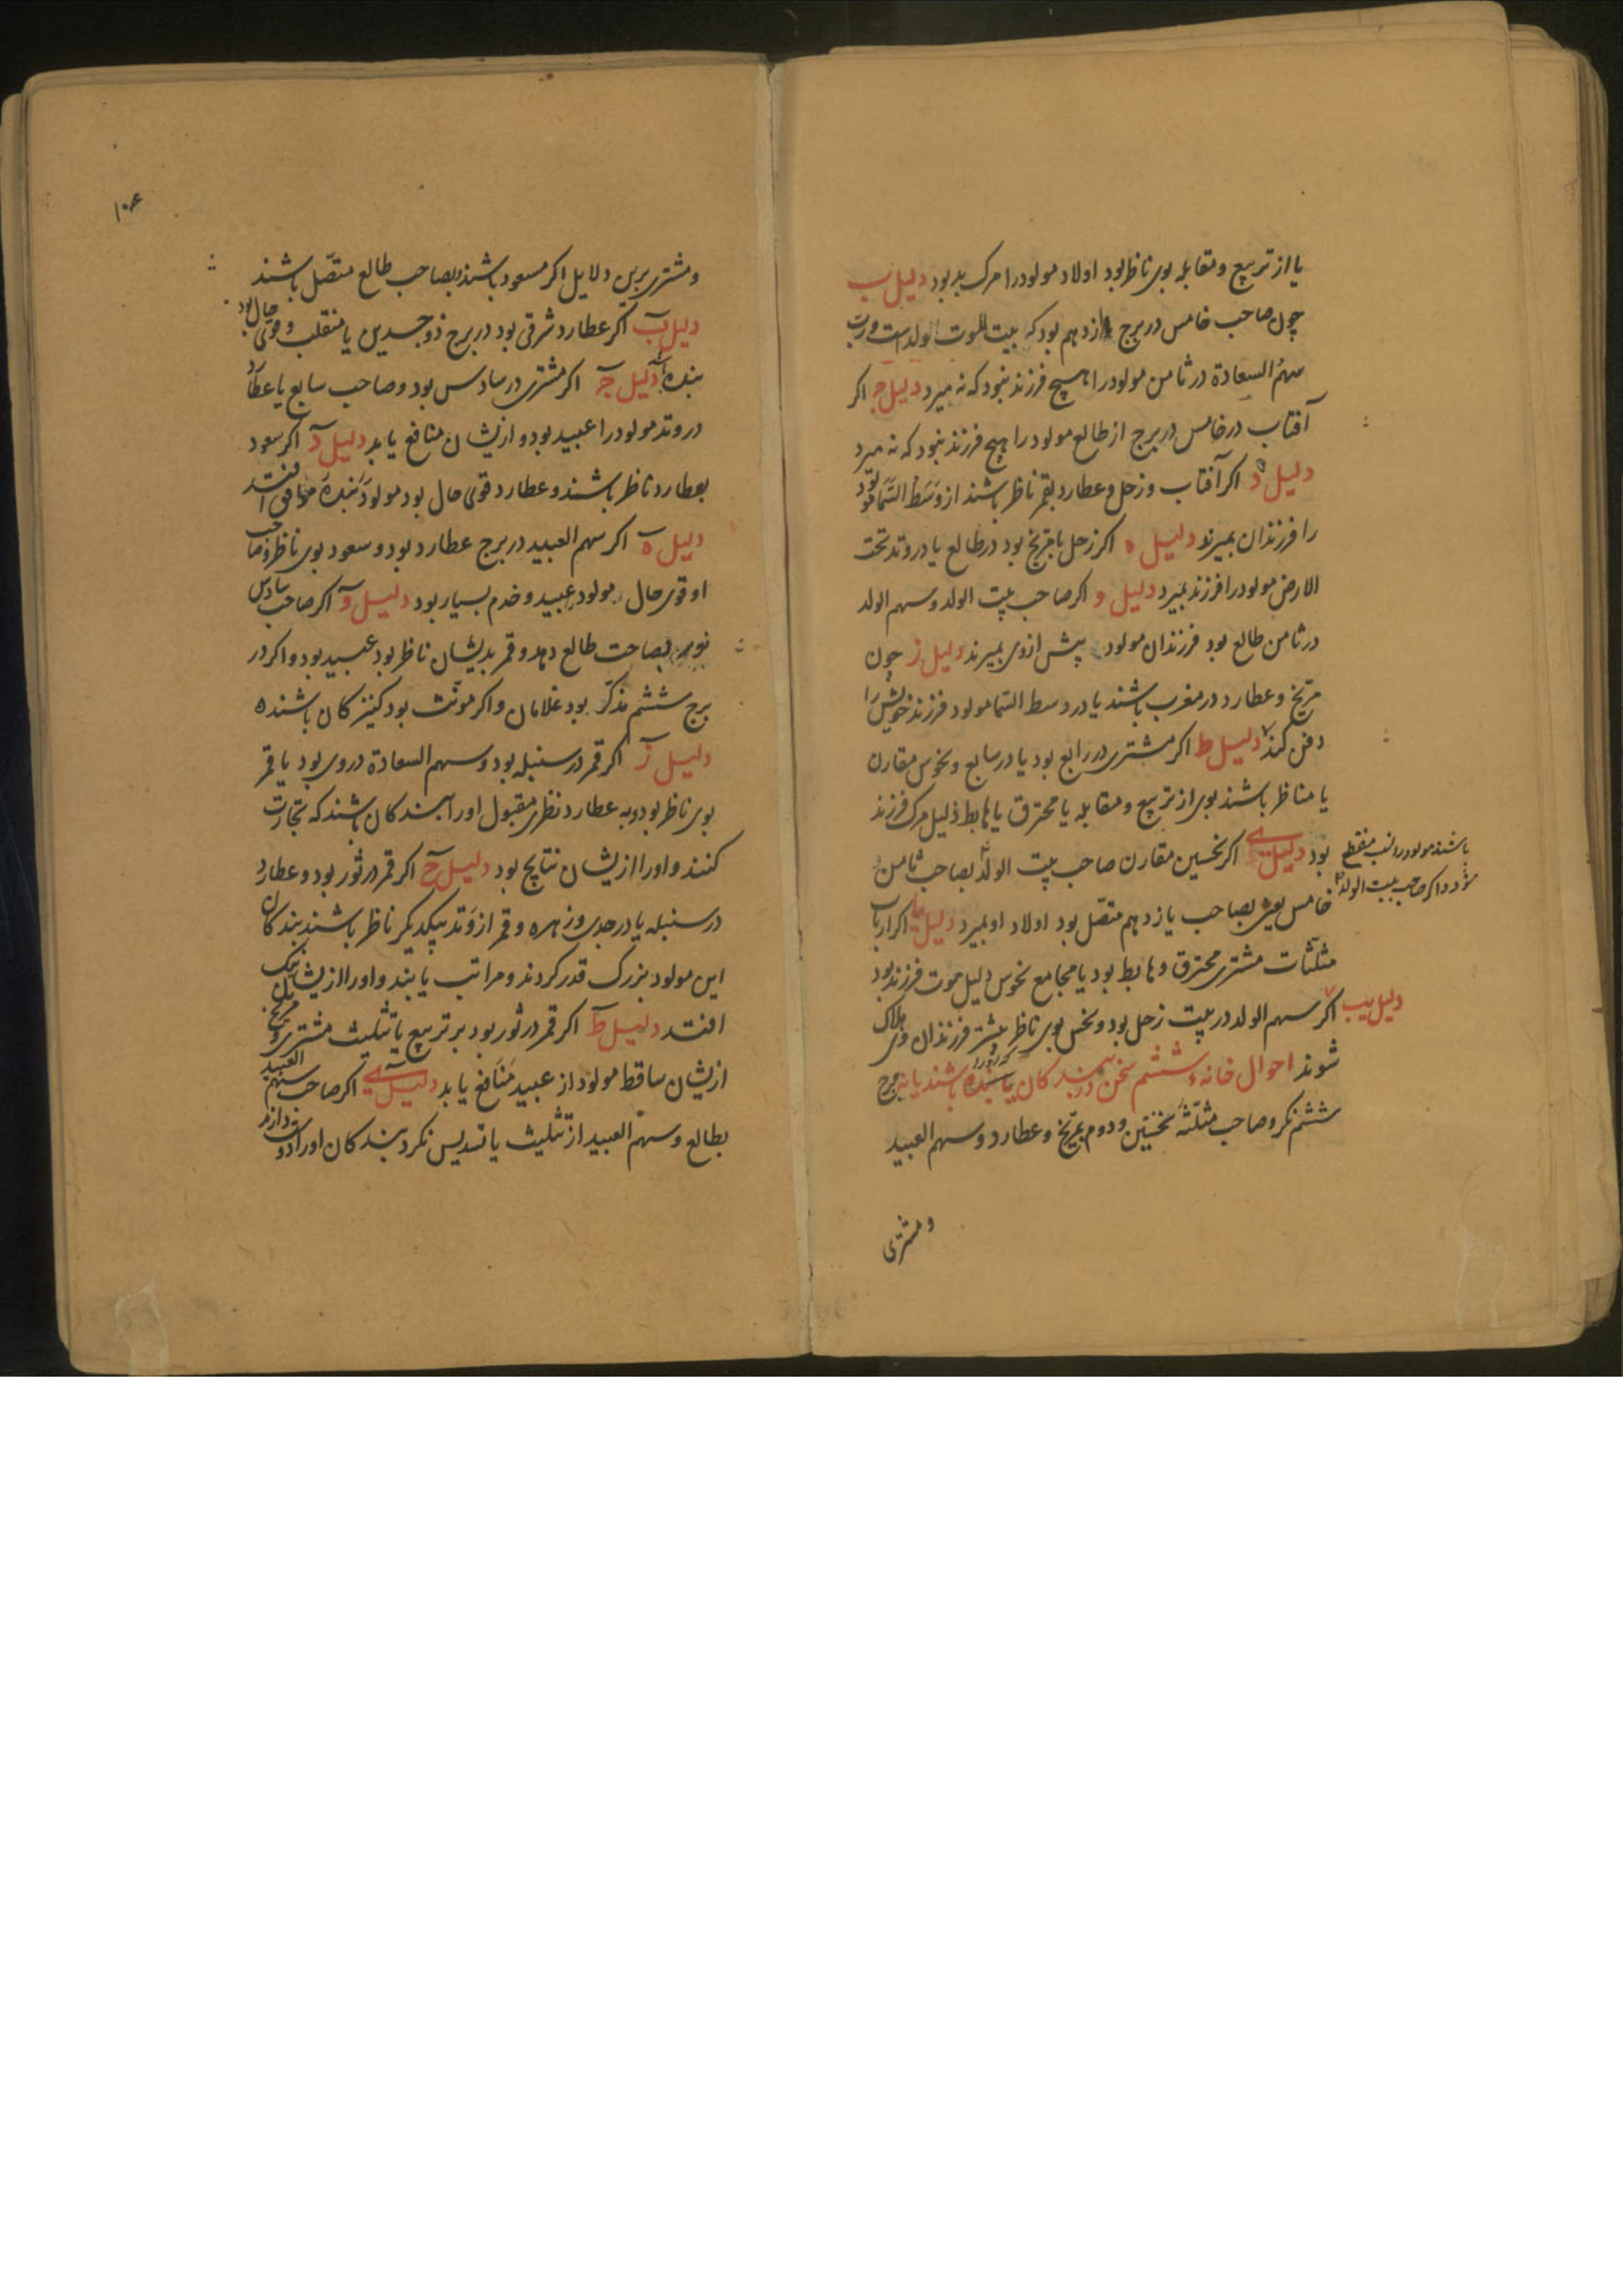 یا از تربیع و مقابله بوی ناظر بود اولاد مولود را مرک بد بود دلیل ب
چون صاحب خامس در برج یازدهم بود که بیت الموت الولدست و رب
سهم السعادة در ثامن مولود را هیچ فرزند نبود که نه میرد دلیل ج اکر
آفتاب در خامس در برج از طالع مولود را هیچ فرزند نبود که نه میرد
دلیل د اکر آفتاب و زحل و عطارد بقمر ناظر باشند از وسط السما مولود
را فرزندان بمیرند دلیل ه اکر زحل با مریخ بود در طالع یا در وتد تحت
الارض مولود را فرزند بمیرد دلیل و اکر صاحب بیت الولد و سهم الولد
در ثامن طالع بود فرزندان مولود پیش از وی بمیرند دلیل ز چون
مریخ و عطارد در مغرب باشند یا در وسط السما مولود فرزند خویش را
دفن کند دلیل ط اکر مشتری در رابع بود یا در سابع و نحوس مقارن
یا مناظر باشند بوی از تربیع و مقابله یا محترق یا هابط دلیل مرک فرزند
بود دلیل ی اکر نحسین مقارن صاحب بیت الولد بصاحب ثامن
باشند مولود را نسب منقطع
شود و اکر صاحب بیت الولد
خامس یعنی بصاحب یازدهم متصل بود اولاد او بمیرد دلیل یا اکر ارباب
مثلثات مشتری محترق و هابط بود یا مجامع نحوس دلیل موت فرزند بود
دلیل یب اکر سهم الولد در بیت زحل بود و نحس بوی ناظر بیشتر فرزندان وی هلاک
شوند احوال خانهء ششم سخن در بندکان که او را بنده باشند یا نه برج
ششم نکر و صاحب مثلثه نخستین و دوم مریخ و عطارد و سهم العبید
و مشتری
۱۰۶
و مشتری برین دلایل اکر مسعود باشند و بصاحب طالع متصل باشند
دلیل ب اکر عطارد شرقی بود در برج ذو جسدین یا منقلب و قوی حال بود
بنده دلیل ج اکر مشتری در سادس بود و صاحب سابع یا عطارد
در وتد مولود را عبید بود و ازیشان منافع یابد دلیل د اکر سعود
بعطارد ناظر باشند و عطارد قوی حال بود مولود بنده موافق افتد
دلیل ه اکر سهم العبید در برج عطارد بود و سعود بوی ناظر و صاحب
او قوی حال مولود عبید و خدم بسیار بود دلیل و اکر صاحب سادس
بصاحب طالع دهد و قمر بدیشان ناظر بود عبید بود و اکر در
برج ششم مذکر بود غلامان و اکر مونث بود کنیزکان باشنده
دلیل ز اکر قمر در سنبله بود و سهم السعادة در وی بود یا قمر
بوی ناظر بود و به عطارد نظری مقبول او را بندکان باشند که تجارت
کنند و او را ازیشان نتایج بود دلیل ح اکر قمر در ثور بود و عطارد
در سنبله یا در جدی و زهره و قمر از وتد بیکدیکر ناظر باشند بندکان
این مولود بزرک قدر کردند و مراتب یابند و او را ازیشان نیک
افتد دلیل ط اکر قمر در ثور بود بر تربیع یا تثلیث مشتری و مریخ
ازیشان ساقط مولود از عبید منافع یابد دلیل ی اکر صاحب سهم العبید
بطالع و سهم العبید از تثلیث یا تسدیس نکرد بندکان او را دوست دارند